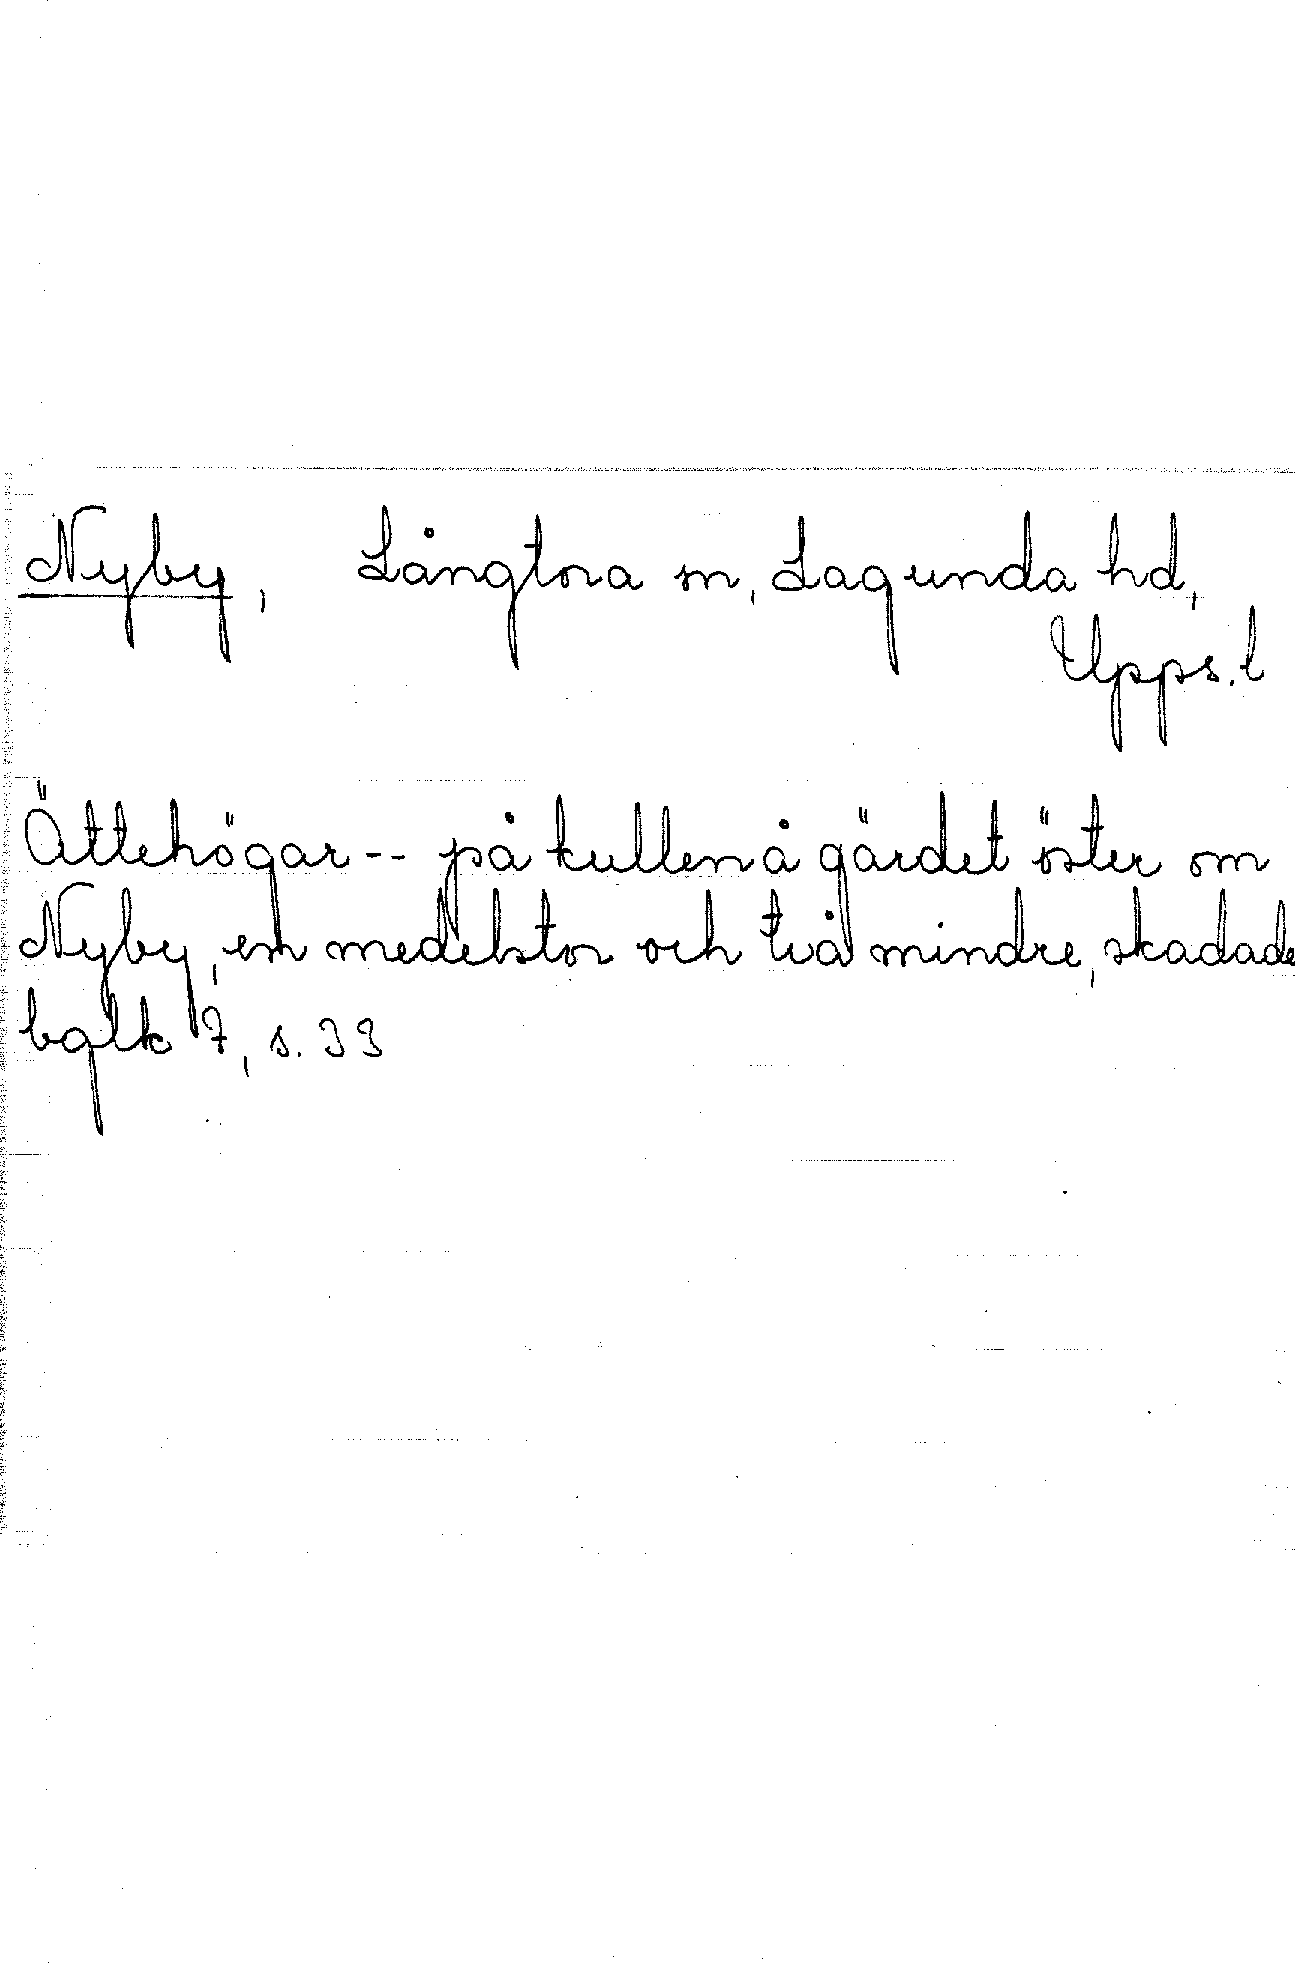 Nyby, Långtora sn, Lagunda hd,
Upps. l
Ättehögar -- på kullen å gärdet öster om
Nyby, en medelstor och två mindre, skadade
bqlk 7, s. 33